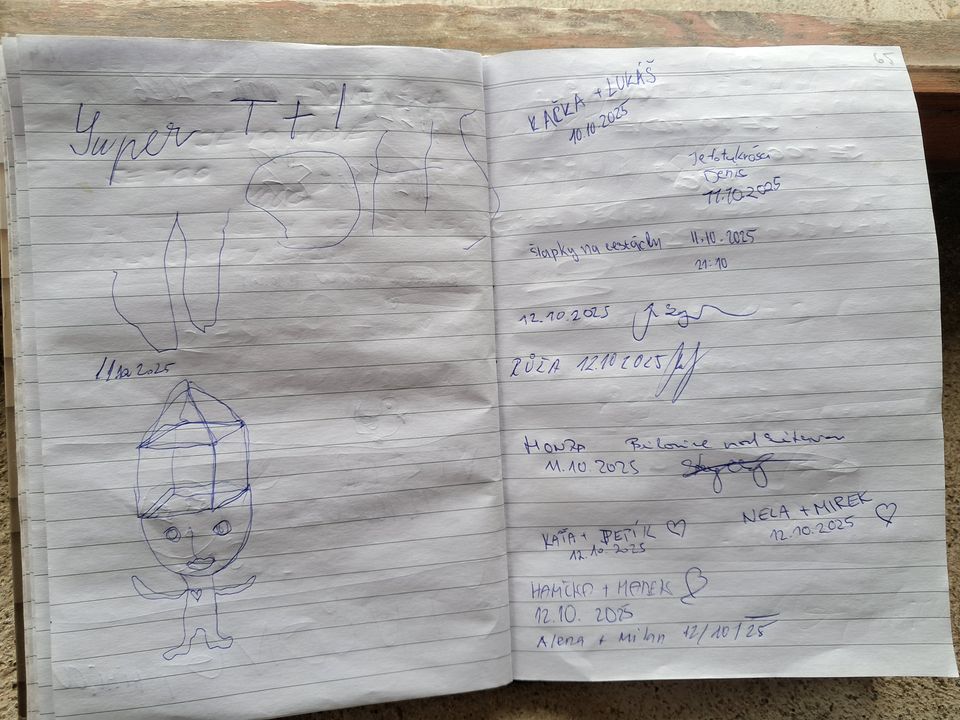 Super T + I
11.10.2025
65
KAČKA + LUKÁŠ
10.10.2025
Je to tu krásný
Denis
11.10.2025
šlapky na cestách 11.10.2025
21:10
12.10.2025
RŮŽA 12.10 2025
HONZA Bílovice nad Svitavou
11.10.2025
KAŤA + PEŤÍK
12.10.2025
NELA + MIREK
12.10.2025
HANIČKA + MAREK
12.10. 2025
Alena + Milan 12/10/25